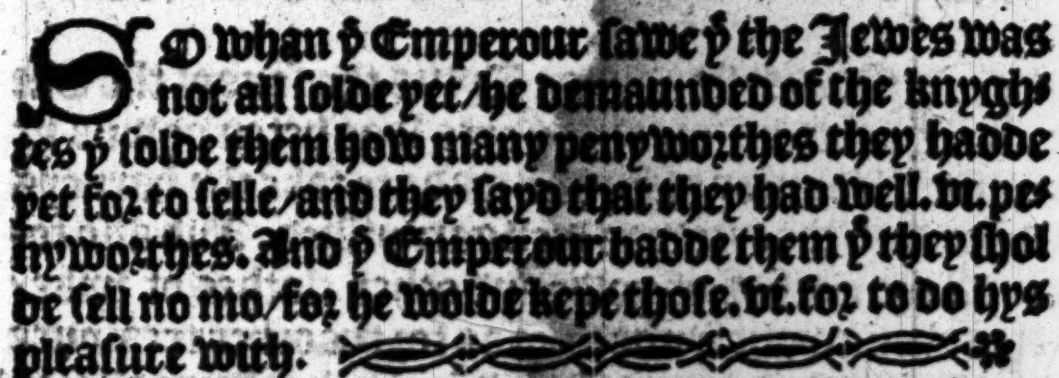 SO whan yͭ Emperour ſawe yͭ the Jewes was
not all ſolde yet/he demaunded of the knygh⸗
tes yͭ ſolde them how many penyworthes they hadde
yet foꝛ to ſelle/and they ſayd that they had well.vi.pe⸗
nywoꝛthes. And yͤ Emperour badde them yͭ they ſhol
de ſell no mo/foꝛ he wolde kepe thoſe.vi.foꝛ to do hys
pleaſure with.